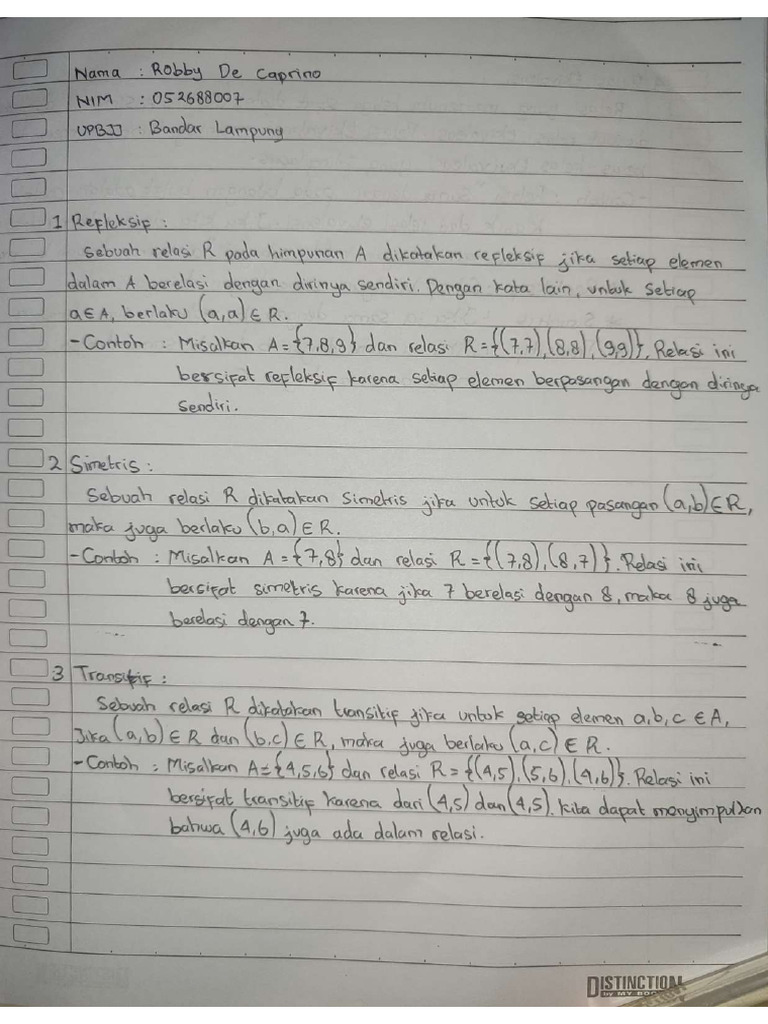 Nama : Robby De Caprino
NIM : 052688007
UPBJJ : Bandar Lampung
1 Refleksif :
Sebuah relasi R pada himpunan A dikatakan refleksif jika setiap elemen
dalam A berelasi dengan dirinya sendiri. Dengan kata lain, untuk setiap
a∈A, berlaku (a,a) ∈ R.
- Contoh : Misalkan A = {7,8,9} dan relasi R = {(7,7),(8,8),(9,9)}. Relasi ini
bersifat refleksif karena setiap elemen berpasangan dengan dirinya
sendiri.
2 Simetris :
Sebuah relasi R dikatakan simetris jika untuk setiap pasangan (a,b) ∈ R,
maka juga berlaku (b,a) ∈ R.
- Contoh : Misalkan A = {7,8} dan relasi R = {(7,8),(8,7)}. Relasi ini
bersifat simetris karena jika 7 berelasi dengan 8, maka 8 juga
berelasi dengan 7.
3 Transitif :
Sebuah relasi R dikatakan transitif jika untuk setiap elemen a,b,c ∈ A,
Jika (a,b) ∈ R dan (b,c) ∈ R, maka juga berlaku (a,c) ∈ R.
- Contoh : Misalkan A = {4,5,6} dan relasi R = {(4,5),(5,6),(4,6)}. Relasi ini
bersifat transitif karena dari (4,5) dan (4,5). kita dapat menyimpulkan
bahwa (4,6) juga ada dalam relasi.
DISTINCTION
by MY